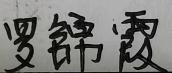 罗錦霞